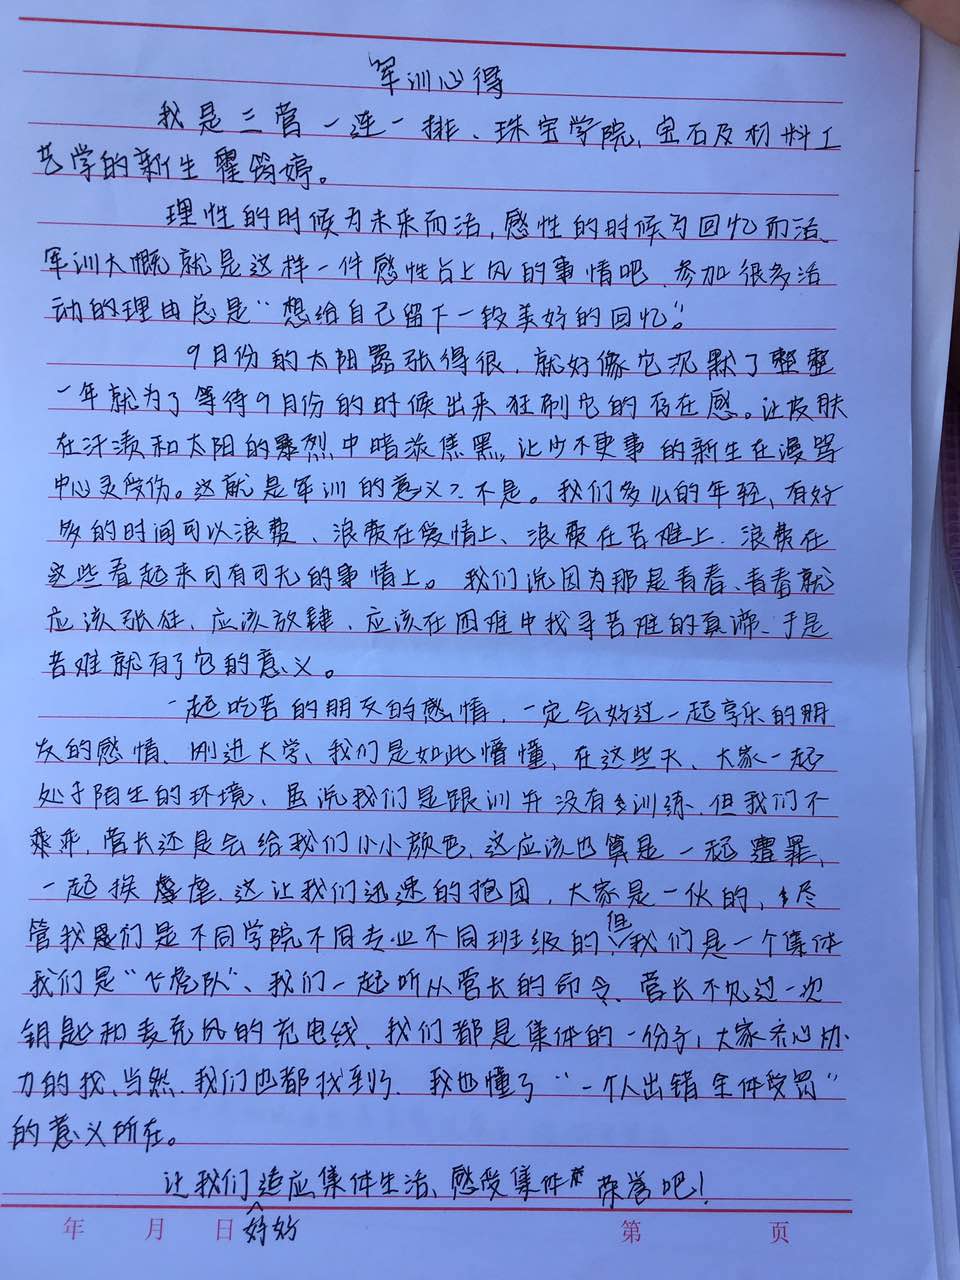 军训心得
我是三营一连一排、珠宝学院,宝石及材料工
艺学的新生霍筠婷。
理性的时候为未来而活,感性的时候为回忆而活、
军训大概就是这样一件感性占上风的事情吧.参加很多活
动的理由总是“想给自己留下一段美好的回忆”。
9月份的太阳嚣张得很,就好像它沉默了整整
一年就为了等待9月份的时候出来狂刷它的存在感。让皮肤
在汗渍和太阳的暴烈中暗淡焦黑,让少不更事的新生在漫骂
中心灵受伤。这就是军训的意义?不是。我们多么的年轻、有好
多的时间可以浪费、浪费在爱情上、浪费在苦难上.浪费在
这些看起来可有可无的事情上。我们说因为那是青春、青春就
应该张狂、应该放肆、应该在困难中找寻苦难的真谛、于是
苦难就有了它的意义。
一起吃苦的朋友的感情,一定会好过一起享乐的朋
友的感情、刚进大学、我们是如此懵懂,在这些天、大家一起
处于陌生的环境、虽说我们是跟训并没有训练.但我们不
乘乖,营长还是会给我们小小颜色.这应该也算是一起遭罪,
一起挨虐.这让我们迅速的抱团,大家是一伙的,尽
管我们是不同学院不同专业不同班级的,但我们是一个集体
我们是“飞虎队”、我们一起听从营长的命令、营长不见过一次
钥匙和麦克风的充电线、我们都是集体的一份子,大家齐心协
力的找、当然.我们也都找到了.我也懂了“一个人出错全体受罚”
的意义所在。
让我们适应集体生活、感受集体荣誉吧!
年 月 日 好好 第 页